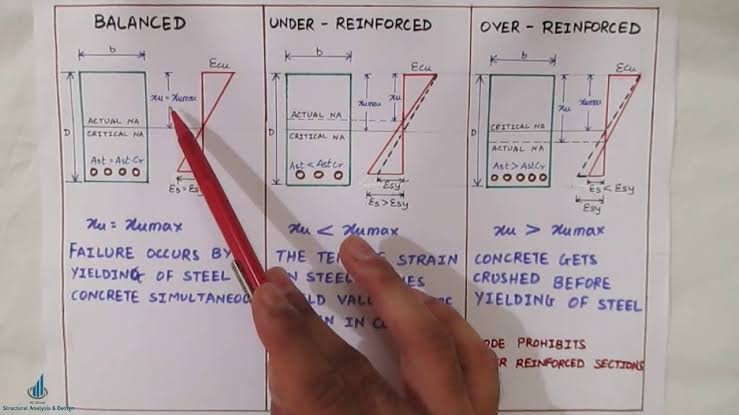 BALANCED
b
Ecu
D
xu = xumax
ACTUAL NA
CRITICAL NA
Ast = Ast-Cr
xu = xumax
FAILURE OCCURS BY
YIELDING OF STEEL
CONCRETE
UNDER - REINFORCED
b
Ecu
D
xumax
xu
ACTUAL NA
CRITICAL NA
Ast < AstCr
Esy
Es > Esy
xu < xumax
THE STRAIN
STEEL
IN
OVER - REINFORCED
b
Ecu
D
xu
xumax
CRITICAL NA
ACTUAL NA
Ast > AstCr
Es < Esy
Esy
xu > xumax
CONCRETE GETS
CRUSHED BEFORE
YIELDING OF STEEL
PROHIBITS
REINFORCED SECTIONS
Structural Analysis & Design